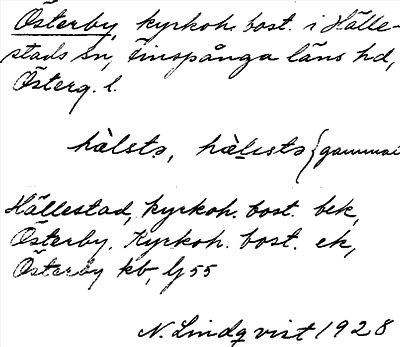 Österby, kyrkoh. bost. i Hälle-
stads sn, Finspånga läns hd,
Österg. l.
hàlstə, hàlẹstə {gammal
Hällestad, kyrkoh. bost. bek,
Österby. Kyrkoh. bost. ek,
Österby kb, lj 55
N. Lindqvist 1928